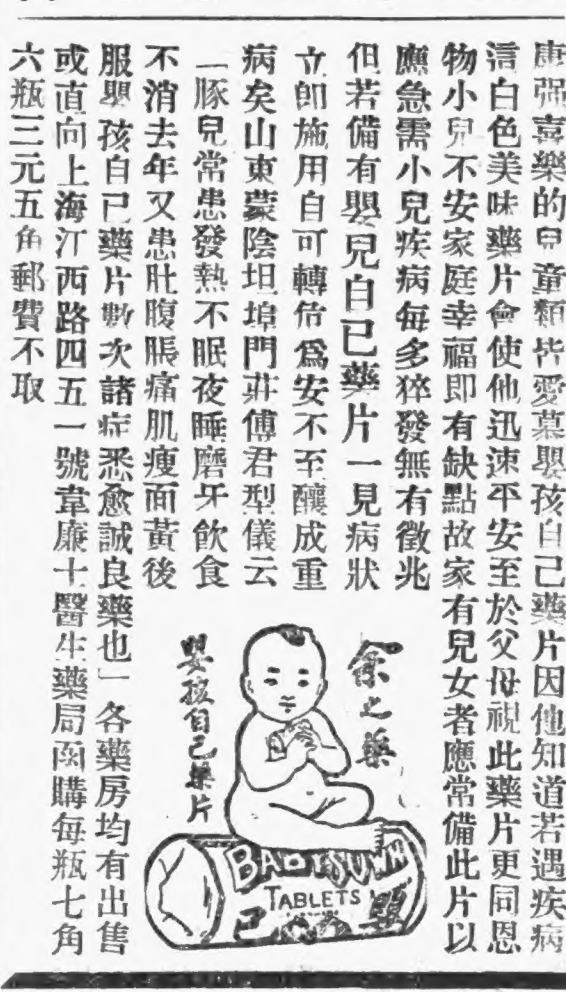 康强喜樂的兒童類皆愛慕嬰孩自己藥片因他知道若遇疾病
這白色美味藥片會使他迅速平安至於父母視此藥片更同恩
物小兒不安家庭幸福即有缺點故家有兒女者應常備此片以
應急需小兒疾病每多猝發無有徵兆
但若備有嬰兒自己藥片一見病狀
立卽施用自可轉危爲安不至釀成重
病矣山東蒙陰坦埠門莊傅君型儀云
「豚兒常患發熱不眠夜睡磨牙飲食
不消去年又患肚腹脹痛肌瘦面黃後
服嬰孩自己藥片數次諸症悉愈誠良藥也」各藥房均有出售
或直向上海江西路四五一號韋廉士醫生藥局函購每瓶七角
六瓶三元五角郵費不取
余之藥
嬰孩自己藥片
BABY'S OWN
TABLETS
嬰
己